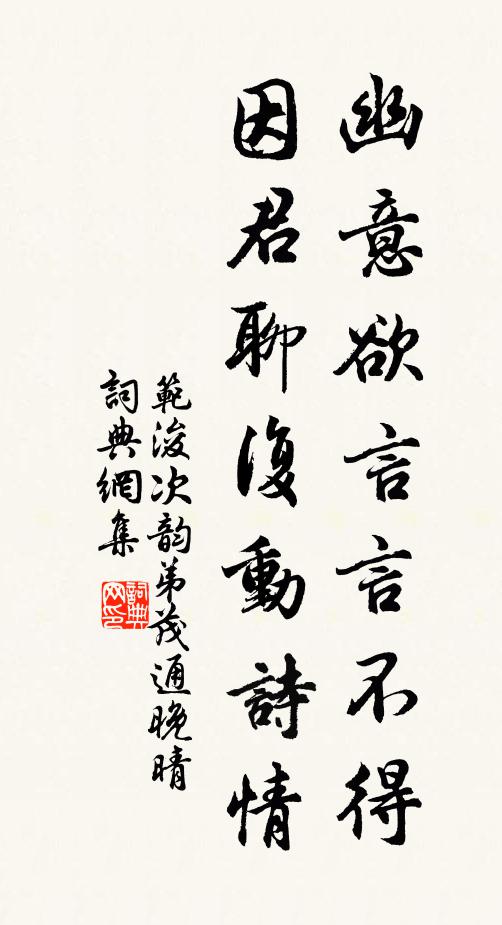 幽意欲言言不得
因君聊復動詩情
範浚次韵弟茂通晚晴
詞典網集
詞典网印